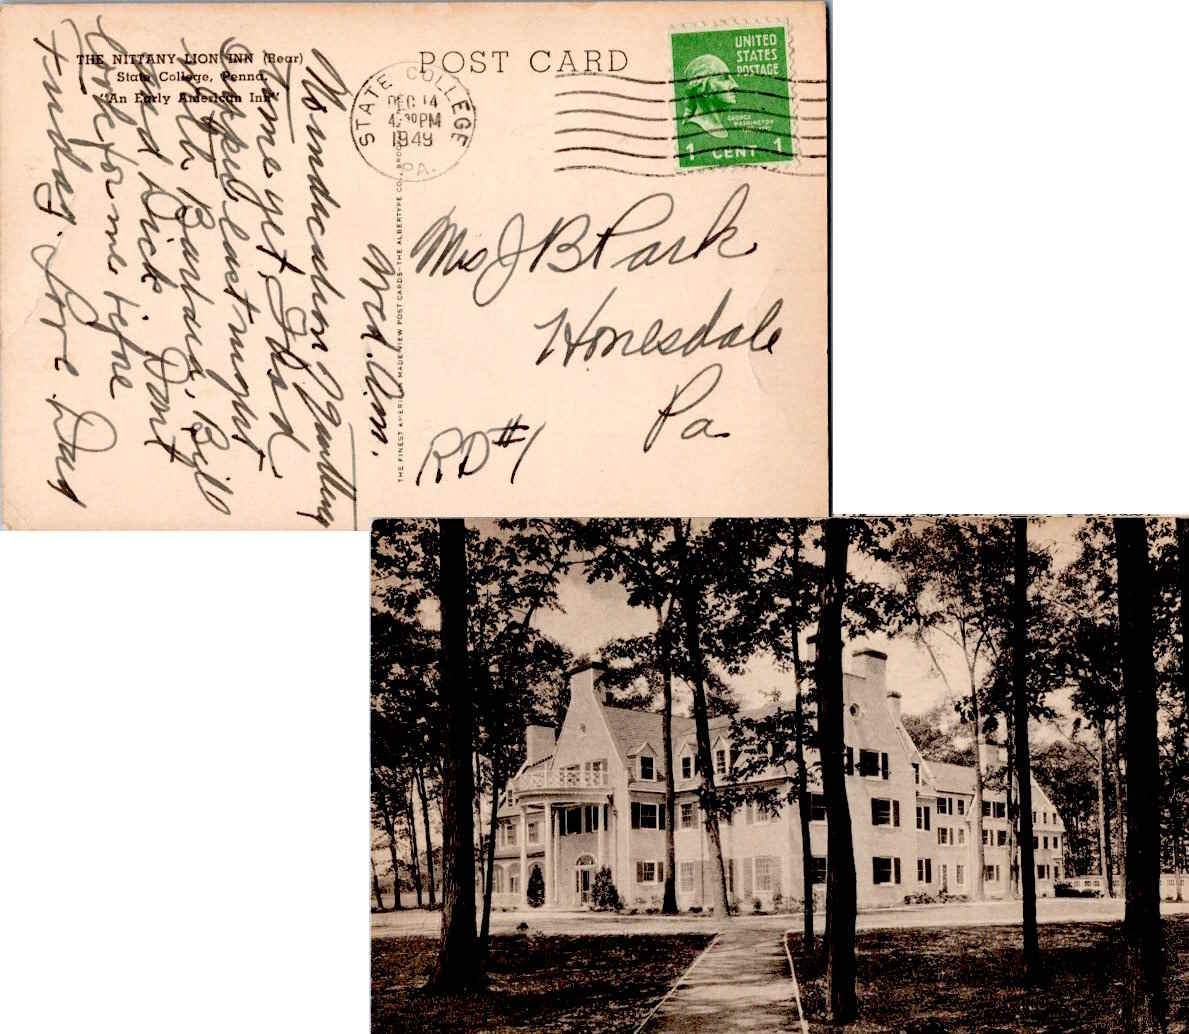 THE NITTANY LION INN (Rear)
State College, Penna.
"An Early American Inn"
POST CARD
STATE COLLEGE
DEC 14
4:30 PM
1949
PA.
UNITED
STATES
POSTAGE
GEORGE
WASHINGTON
1 CENT 1
THE FINEST AMERICAN MADE VIEW POST CARDS-THE ALBERTYPE CO., BROO
Wed. Am.
No indication of
time yet. I had
supper last night
with Barbara, Bill
and Dick. Don't
look for me before
Friday. Love
Mrs J B Park
Honesdale
Pa
RD #1